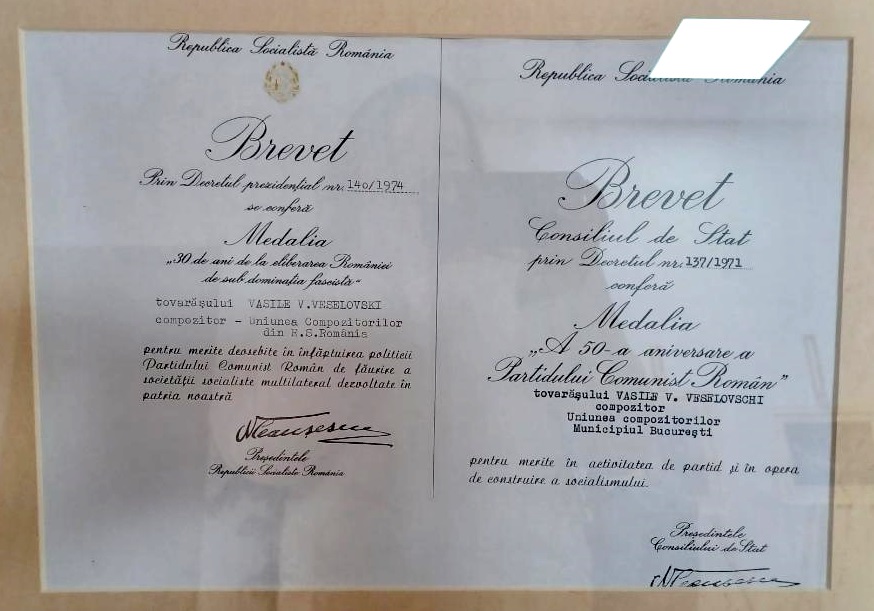 Republica Socialistă România
Brevet
Prin Decretul prezidențial nr. 140/1974
se conferă
Medalia
„30 de ani de la eliberarea României
de sub dominația fascistă"
tovarășului VASILE V.VESELOVSKI
compozitor - Uniunea Compozitorilor
din R.S.România
pentru merite deosebite în înfăptuirea politicii
Partidului Comunist Român de făurire a
societății socialiste multilateral dezvoltate în
patria noastră
NCeaușescu
Președintele
Republicii Socialiste România
Republica Socialistă România
Brevet
Consiliul de Stat
prin Decretul nr. 137/1971
conferă
Medalia
„A 50-a aniversare a
Partidului Comunist Român”
tovarășului VASILE V. VESELOVSCHI
compozitor
Uniunea compozitorilor
Municipiul București
pentru merite în activitatea de partid și în opera
de construire a socialismului.
Președintele
Consiliului de Stat
NCeaușescu